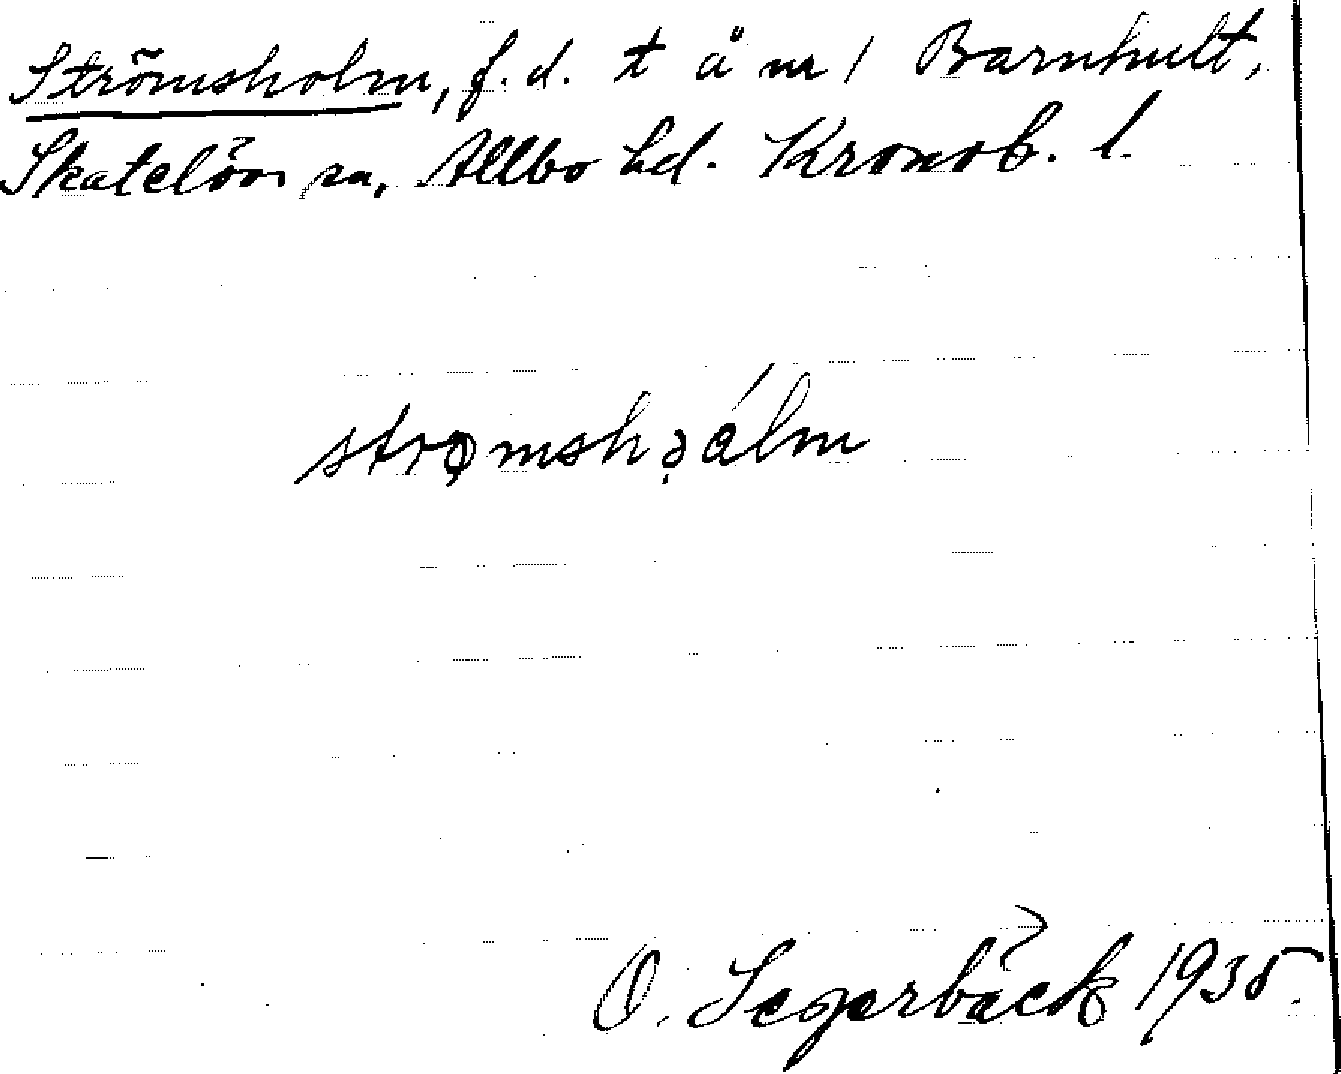 Strömsholm, f. d. t å nr 1 Barnhult,
Skatelövs sn, Allbo hd. Kronob. l.
strǫmshǫ̀lm
O. Segerbäck 1935.